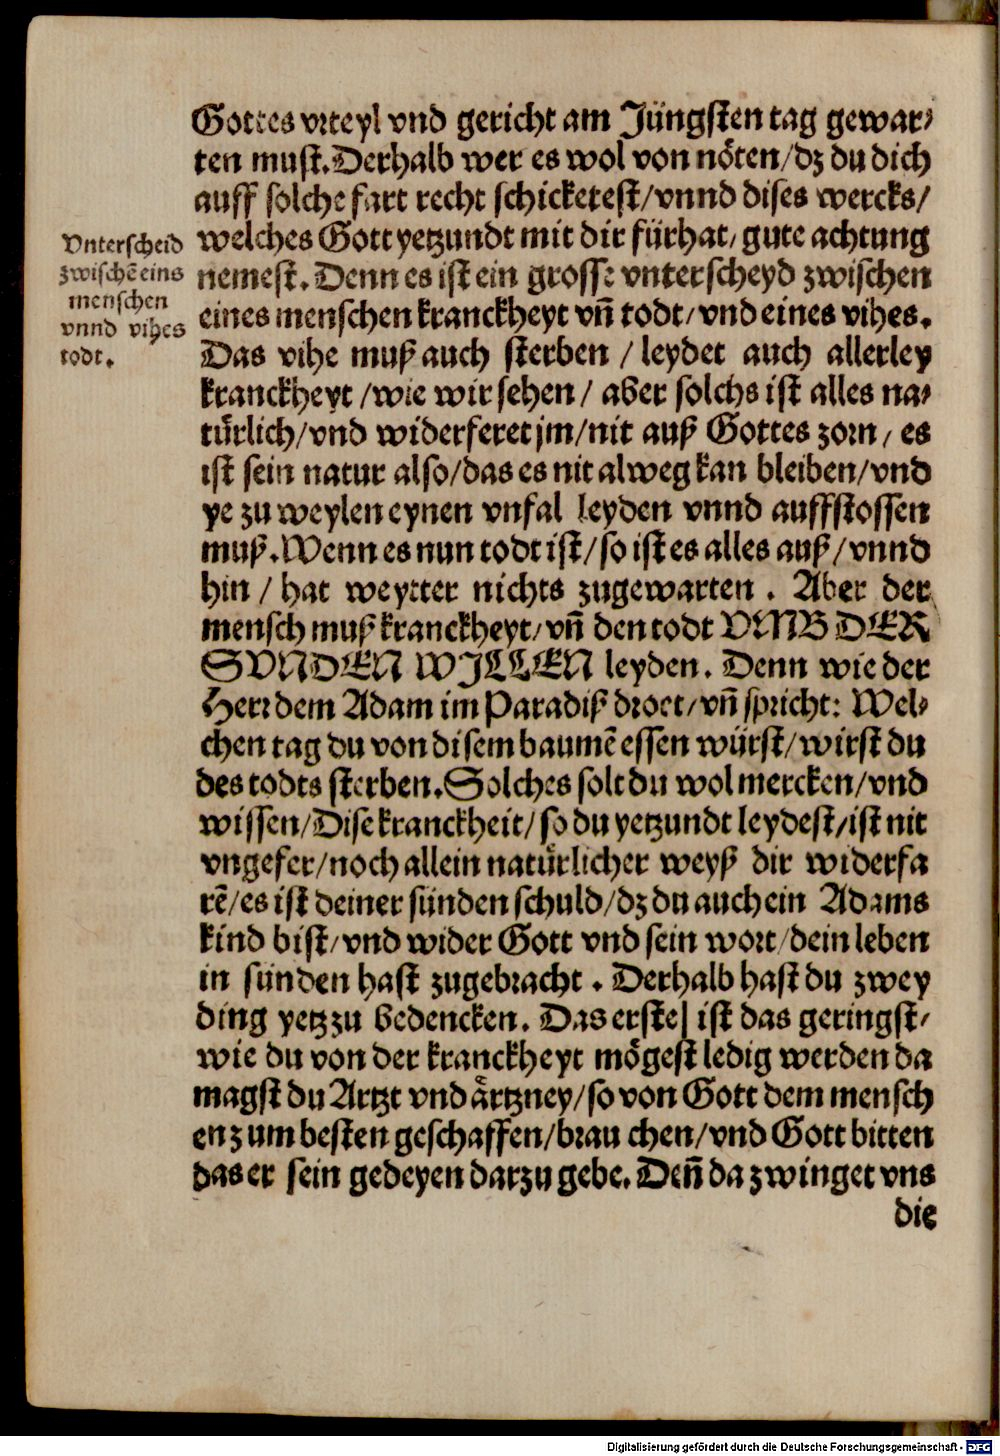 Gottes vrteyl vnd gericht am Jüngsten tag gewar⸗
ten must. Derhalb wer es wol von nöten/ dz du dich
auff solche fart recht schicketest/ vnnd dises wercks/
welches Gott yetzundt mit dir fürhat/ gute achtung
nemest. Denn es ist ein grosser vnterscheyd zwischen
eines menschen kranckheyt vñ todt/ vnd eines vihes.
Das vihe muß auch sterben / leydet auch allerley
kranckheyt /wie wir sehen/ aber solchs ist alles na⸗
türlich/ vnd widerferet jm/ nit auß Gottes zorn/ es
ist sein natur also/ das es nit alweg kan bleiben/ vnd
ye zu weylen eynen vnfal leyden vnnd auffstossen
muß. Wenn es nun todt ist/ so ist es alles auß/ vnnd
hin / hat weytter nichts zugewarten . Aber der
mensch muß kranckheyt/ vñ den todt VMB DER
SVNDEN WJLLEN leyden. Denn wie der
Herr dem Adam im Paradiß droet/ vñ spricht: Wel⸗
chen tag du von disem baumē essen würst/ wirst du
des todts sterben. Solches solt du wol mercken/ vnd
wissen/ Dise kranckheit/ so du yetzundt leydest/ ist nit
vngefer/ noch allein natürlicher weyß dir widerfa
rē/ es ist deiner sünden schuld/ dz du auch ein Adams
kind bist/ vnd wider Gott vnd sein wort/ dein leben
in sünden hast zugebracht . Derhalb hast du zwey
ding yetz zu bedencken. Das erste| ist das geringst/
wie du von der kranckheyt mögest ledig werden da
magst du Artzt vnd ärtzney/ so von Gott dem mensch
en zum besten geschaffen/ brau chen/ vnd Gott bitten
das er sein gedeyen darzu gebe. Deñ da zwinget vns
die
Vnterscheid
zwischē eins
menschen
vnnd vihes
todt.
Digitalisierung gefördert durch die Deutsche Forschungsgemeinschaft - DFG